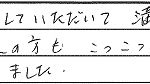 していただいて 満
の方も こつこつ
ました.